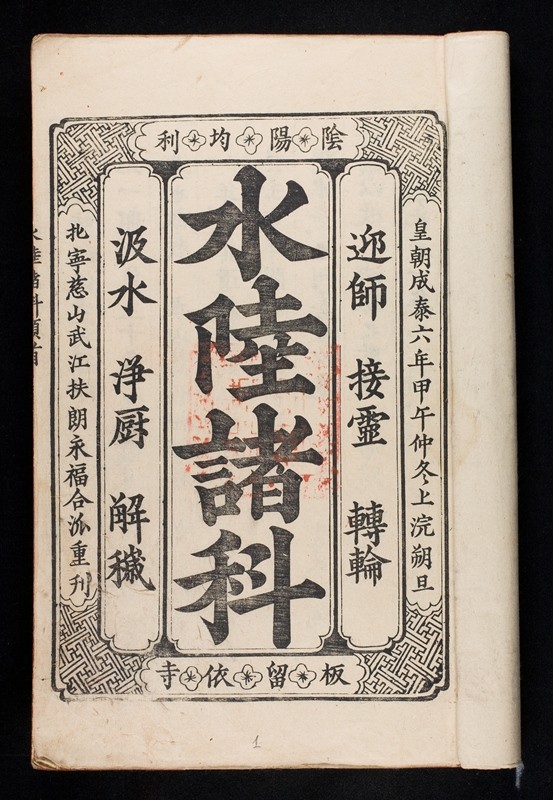 陰陽均利
皇朝成泰六年甲午仲冬上浣朔旦
迎師 接靈 轉輪
水陸諸科
汲水 淨厨 解穢
北寧慈山武江扶朗永福合派重刊
板留依寺
1